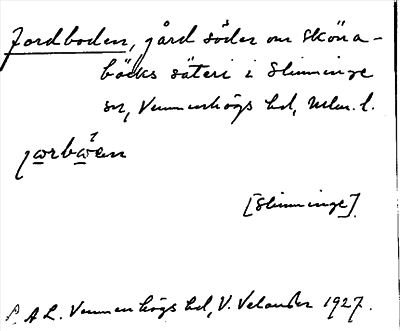 Jordboden, gård söder om Sköna-
bäcks säteri i Slimminge
sn, Vemmenhögs hd, Mlm. l.
[Slimminge].
L. A L. Vemmenhögs hd, V. Velander 1927.